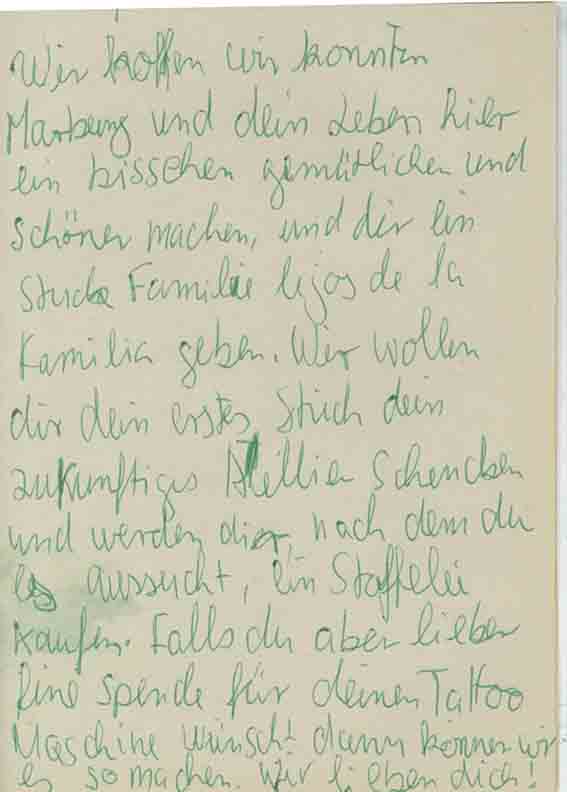 Wir hoffen wir konnten
Marburg und dein Leben hier
ein bisschen gemütlicher und
schöner machen, und dir ein
stuck Familie lejos de la
Familia geben. Wir wollen
dir dein erstes Stuch dein
zukunftiges Atellier schencken
und werden dier, nach dem du
es aussucht, ein Staffelei
kaufen. Falls du aber lieber
eine spende für deinen Tattoo
Maschine wünscht dann können wir
es so machen. Wir lieben dich!